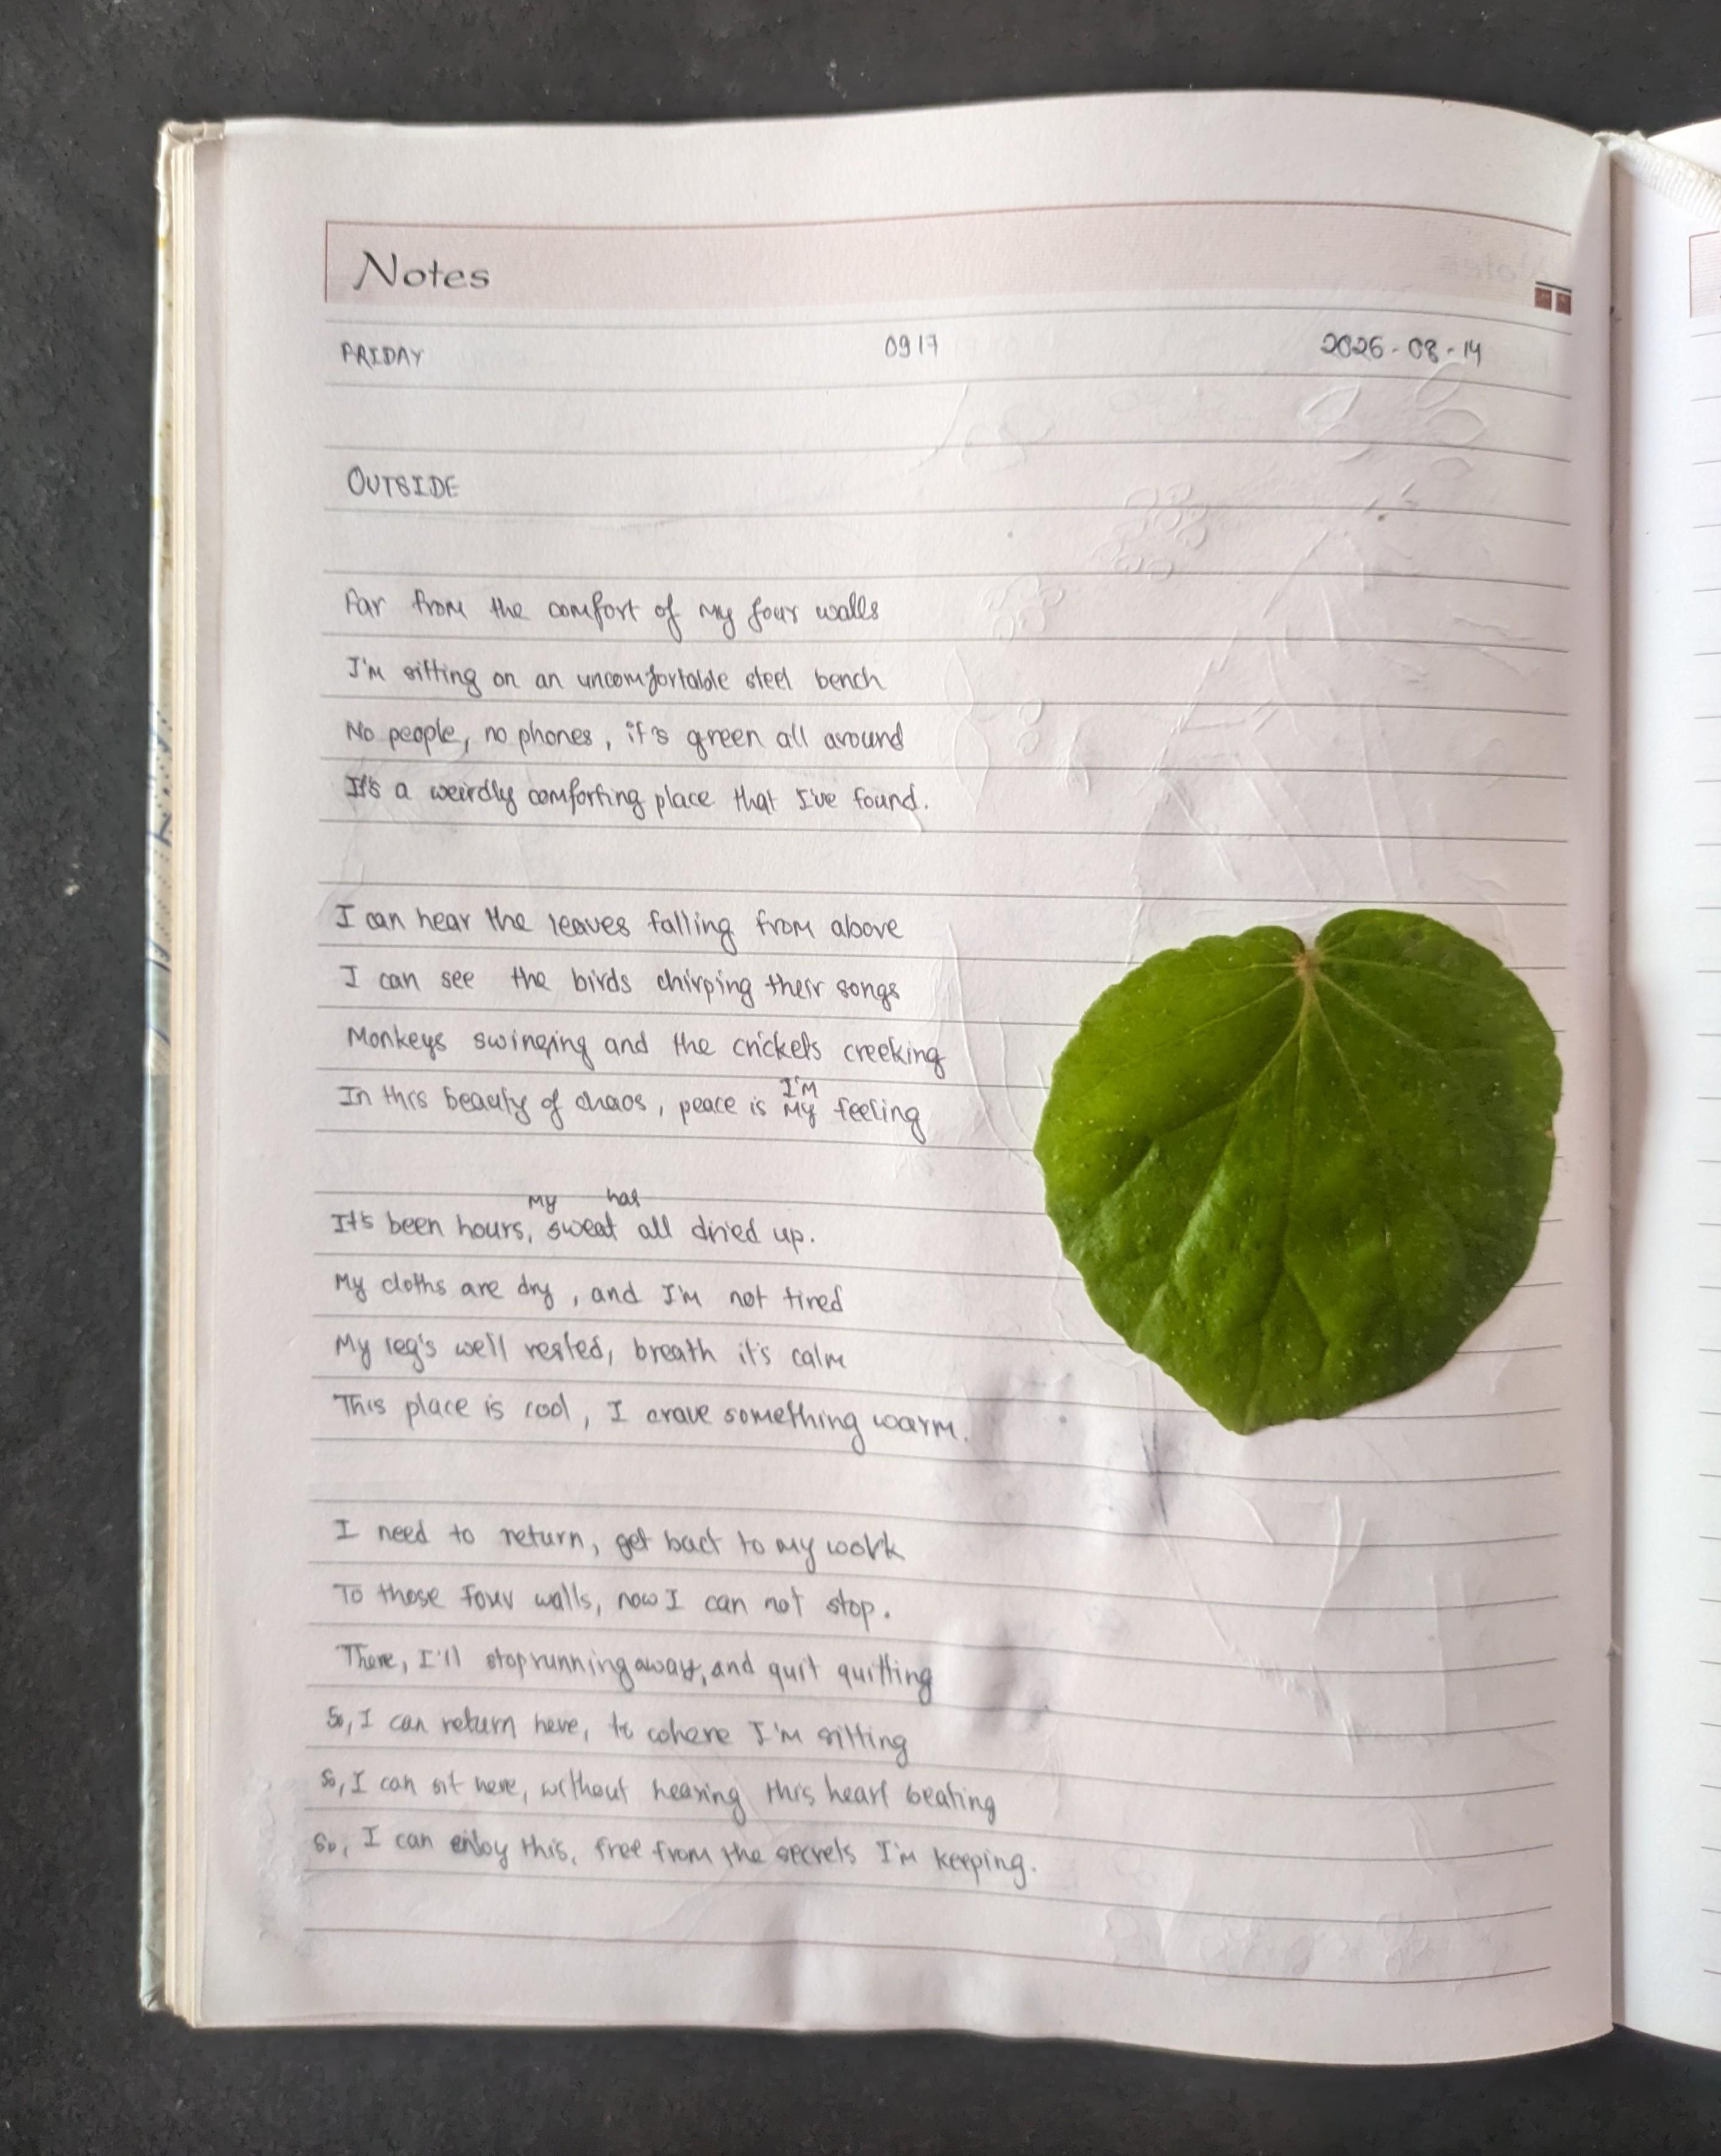 Notes
FRIDAY 0917 2026-08-14
OUTSIDE
Far from the comfort of my four walls
I'm sitting on an uncomfortable steel bench
No people, no phones, it's green all around
It's a weirdly comforting place that I've found.
I can hear the leaves falling from above
I can see the birds chirping their songs
Monkeys swinging and the crickets creeking
I'm
In this beauty of chaos, peace is my feeling
my has
It's been hours, sweat all dried up.
My cloths are dry, and I'm not tired
My leg's well rested, breath it's calm
This place is cool, I crave something warm.
I need to return, get back to my work
To those four walls, now I can not stop.
There, I'll stop running away, and quit quitting
So, I can return here, to where I'm sitting
So, I can sit here, without hearing this heart beating
So, I can enjoy this, free from the secrets I'm keeping.